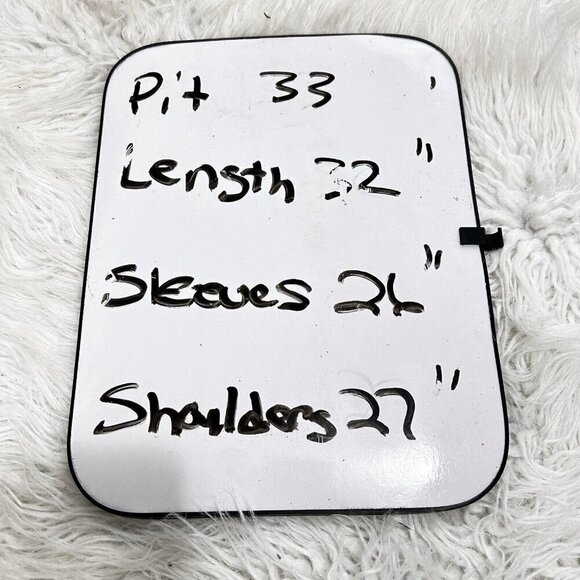 Pit 33 '
Length 32 "
Sleeves 26"
Shoulders 27"